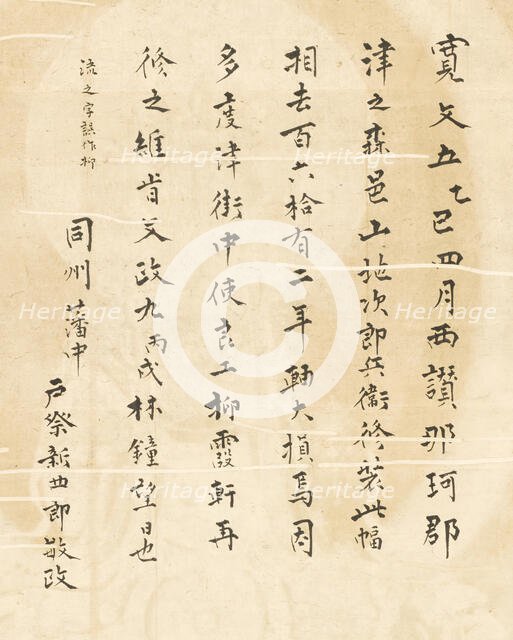 寛文五乙巳四月西讃那珂郡
津之森邑山地次郎兵衛修装此幅
相去百六拾有二年軸大損焉因
多度津街中使良工柳霞軒再
修之維旹文政九丙戌林鐘望日也
流之字誤作柳
同州藩中
戸祭新四郎敏政
Heritage
Heritage
Heritage
Heritage
Heritage
Heritage
Heritage